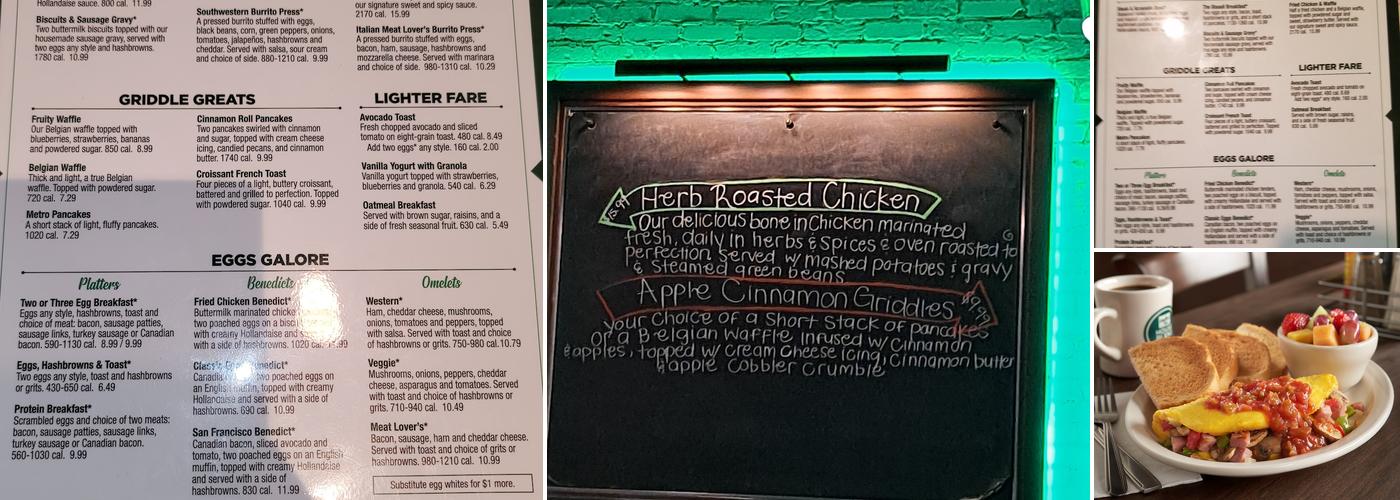 Hollandaise sauce. 800 cal. 11.99
Biscuits & Sausage Gravy*
Two buttermilk biscuits topped with our
housemade sausage gravy, served with
two eggs any style and hashbrowns.
1780 cal. 10.99
Southwestern Burrito Press*
A pressed burrito stuffed with eggs,
black beans, corn, green peppers, onions,
tomatoes, jalapeños, hashbrowns and
cheddar. Served with salsa, sour cream
and choice of side. 880-1210 cal. 9.99
our signature sweet and spicy sauce.
2170 cal. 15.99
Italian Meat Lover's Burrito Press*
A pressed burrito stuffed with eggs,
bacon, ham, sausage, hashbrowns and
mozzarella cheese. Served with marinara
and choice of side. 980-1310 cal. 10.29
GRIDDLE GREATS
Fruity Waffle
Our Belgian waffle topped with
blueberries, strawberries, bananas
and powdered sugar. 850 cal. 8.99
Belgian Waffle
Thick and light, a true Belgian
waffle. Topped with powdered sugar.
720 cal. 7.29
Metro Pancakes
A short stack of light, fluffy pancakes.
1020 cal. 7.29
Cinnamon Roll Pancakes
Two pancakes swirled with cinnamon
and sugar, topped with cream cheese
icing, candied pecans, and cinnamon
butter. 1740 cal. 9.99
Croissant French Toast
Four pieces of a light, buttery croissant,
battered and grilled to perfection. Topped
with powdered sugar. 1040 cal. 9.99
LIGHTER FARE
Avocado Toast
Fresh chopped avocado and sliced
tomato on eight-grain toast. 480 cal. 8.49
Add two eggs* any style. 160 cal. 2.00
Vanilla Yogurt with Granola
Vanilla yogurt topped with strawberries,
blueberries and granola. 540 cal. 6.29
Oatmeal Breakfast
Served with brown sugar, raisins, and a
side of fresh seasonal fruit. 630 cal. 5.49
EGGS GALORE
Platters
Two or Three Egg Breakfast*
Eggs any style, hashbrowns, toast and
choice of meat: bacon, sausage patties,
sausage links, turkey sausage or Canadian
bacon. 590-1130 cal. 8.99 / 9.99
Eggs, Hashbrowns & Toast*
Two eggs any style, toast and hashbrowns
or grits. 430-650 cal. 6.49
Protein Breakfast*
Scrambled eggs and choice of two meats:
bacon, sausage patties, sausage links,
turkey sausage or Canadian bacon.
560-1030 cal. 9.99
Benedicts
Fried Chicken Benedict*
Buttermilk marinated chicken
two poached eggs on a biscuit
with creamy Hollandaise and
with a side of hashbrowns. 1020 cal. 11.99
Classic Eggs Benedict*
Canadian bacon, two poached eggs on
an English muffin, topped with creamy
Hollandaise and served with a side of
hashbrowns. 690 cal. 10.99
San Francisco Benedict*
Canadian bacon, sliced avocado and
tomato, two poached eggs on an English
muffin, topped with creamy Hollandaise
and served with a side of
hashbrowns. 830 cal. 11.99
Omelets
Western*
Ham, cheddar cheese, mushrooms,
onions, tomatoes and peppers, topped
with salsa. Served with toast and choice
of hashbrowns or grits. 750-980 cal.10.79
Veggie*
Mushrooms, onions, peppers, cheddar
cheese, asparagus and tomatoes. Served
with toast and choice of hashbrowns or
grits. 710-940 cal. 10.49
Meat Lover's*
Bacon, sausage, ham and cheddar cheese.
Served with toast and choice of grits or
hashbrowns. 980-1210 cal. 10.99
Substitute egg whites for $1 more.
Herb Roasted Chicken
Our delicious bone in Chicken marinated
fresh, daily in herbs & spices & oven roasted to
perfection. Served w/ mashed potatoes & gravy
& steamed green beans
Apple Cinnamon Griddles
your choice of a short stack of pancakes
or a Belgian waffle infused w/ Cinnamon
& apples, topped w/ cream cheese icing, cinnamon butter
& apple cobbler crumble
GRIDDLE GREATS
Fruity Waffle
Belgian Waffle
Metro Pancakes
Cinnamon Roll Pancakes
Croissant French Toast
LIGHTER FARE
Avocado Toast
Oatmeal Breakfast
EGGS GALORE
Platters
Benedicts
Omelets
Two or Three Egg Breakfast*
Eggs, Hashbrowns & Toast*
Protein Breakfast*
Fried Chicken Benedict*
Classic Eggs Benedict*
Western*
Veggie*